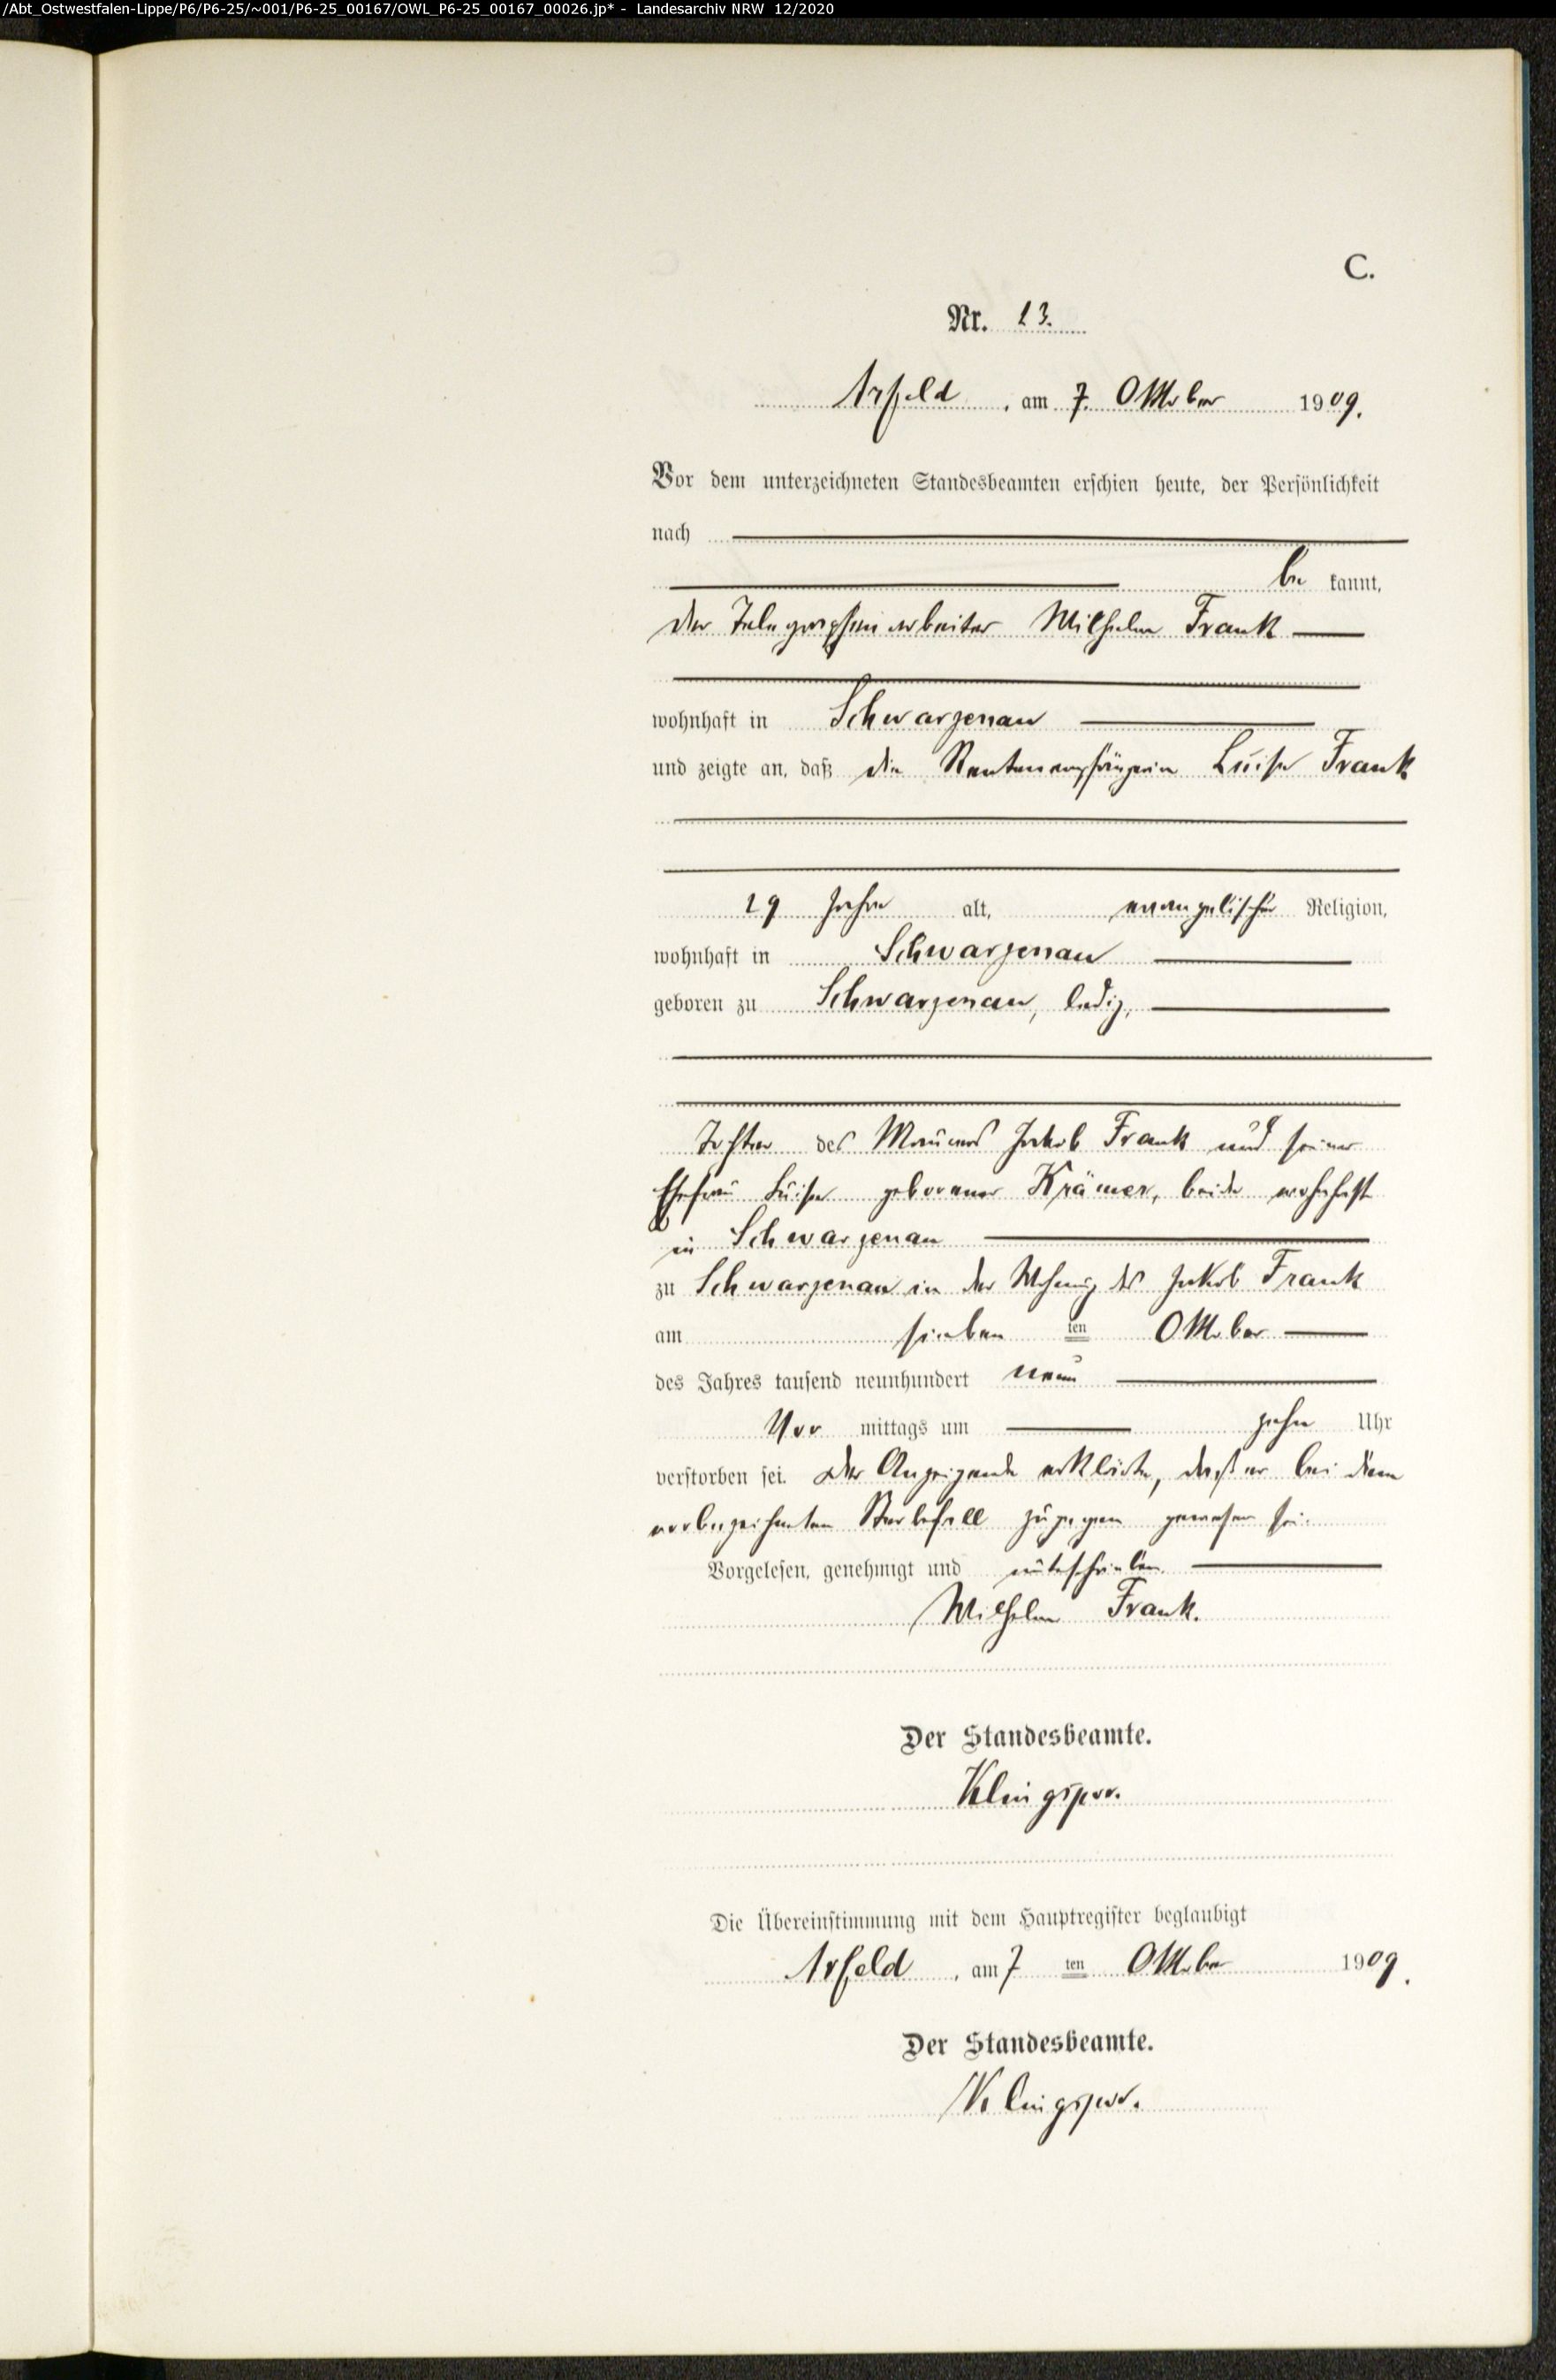 /Abt_Ostwestfalen-Lippe/P6/P6-25/~001/P6-25_00167/OWL_P6-25_00167_00026.jp* - Landesarchiv NRW 12/2020
C.
Nr. 23.
Arfeld, am 7. Oktober 1909.
Vor dem unterzeichneten Standesbeamten erschien heute, der Persönlichkeit
nach
be kannt,
der Telegraphenarbeiter Wilhelm Frank
wohnhaft in Schwarzenau
und zeigte an, daß die Rentenempfängerin Luise Frank
29 Jahre alt, evangelischer Religion,
wohnhaft in Schwarzenau
geboren zu Schwarzenau, ledig,
Tochter des Maurers Jakob Frank und seiner
Ehefrau Luise geborener Krämer, beide wohnhaft
in Schwarzenau
zu Schwarzenau in der Wohnung des Jakob Frank
am sieben ten Oktober
des Jahres tausend neunhundert neun
Vor mittags um zehn Uhr
verstorben sei. Der Anzeigende erklärte, daß er bei dem
vorbezeichneten Sterbefall zugegen gewesen sei.
Vorgelesen, genehmigt und unterschrieben.
Wilhelm Frank.
Der Standesbeamte.
Klingspor.
Die Übereinstimmung mit dem Hauptregister beglaubigt
Arfeld, am 7 ten Oktober 1909.
Der Standesbeamte.
Klingspor.